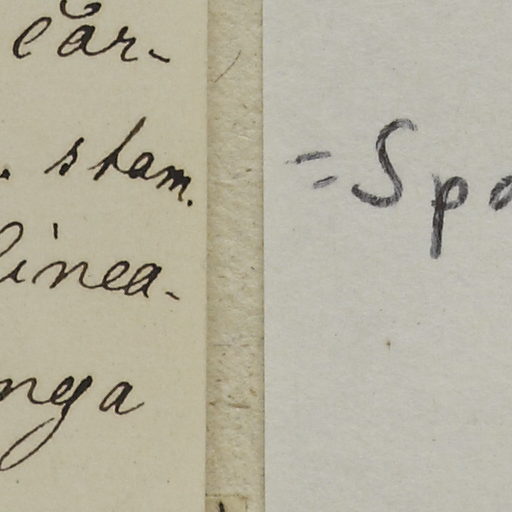 car-
. stam.
linea-
nga
= Spo